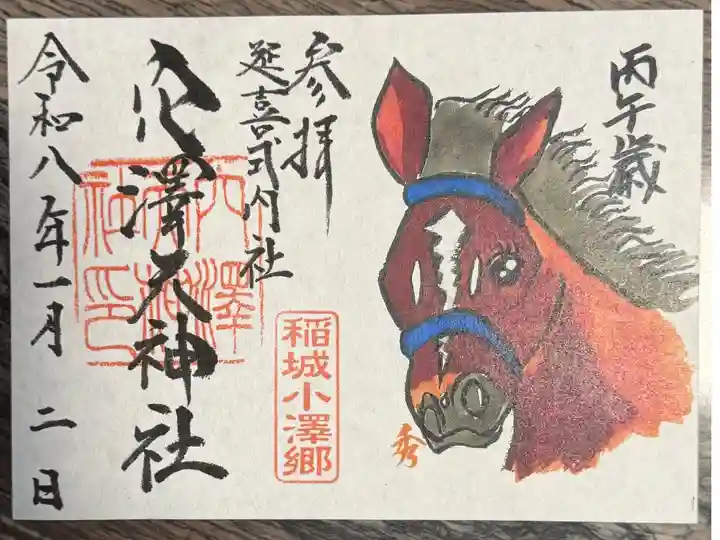 丙午歳
参拝
延喜式内社
穴澤天神社
令和八年一月 二日
稲城小澤郷
秀